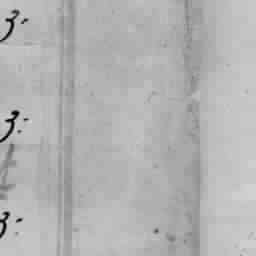 3:
3:
3: